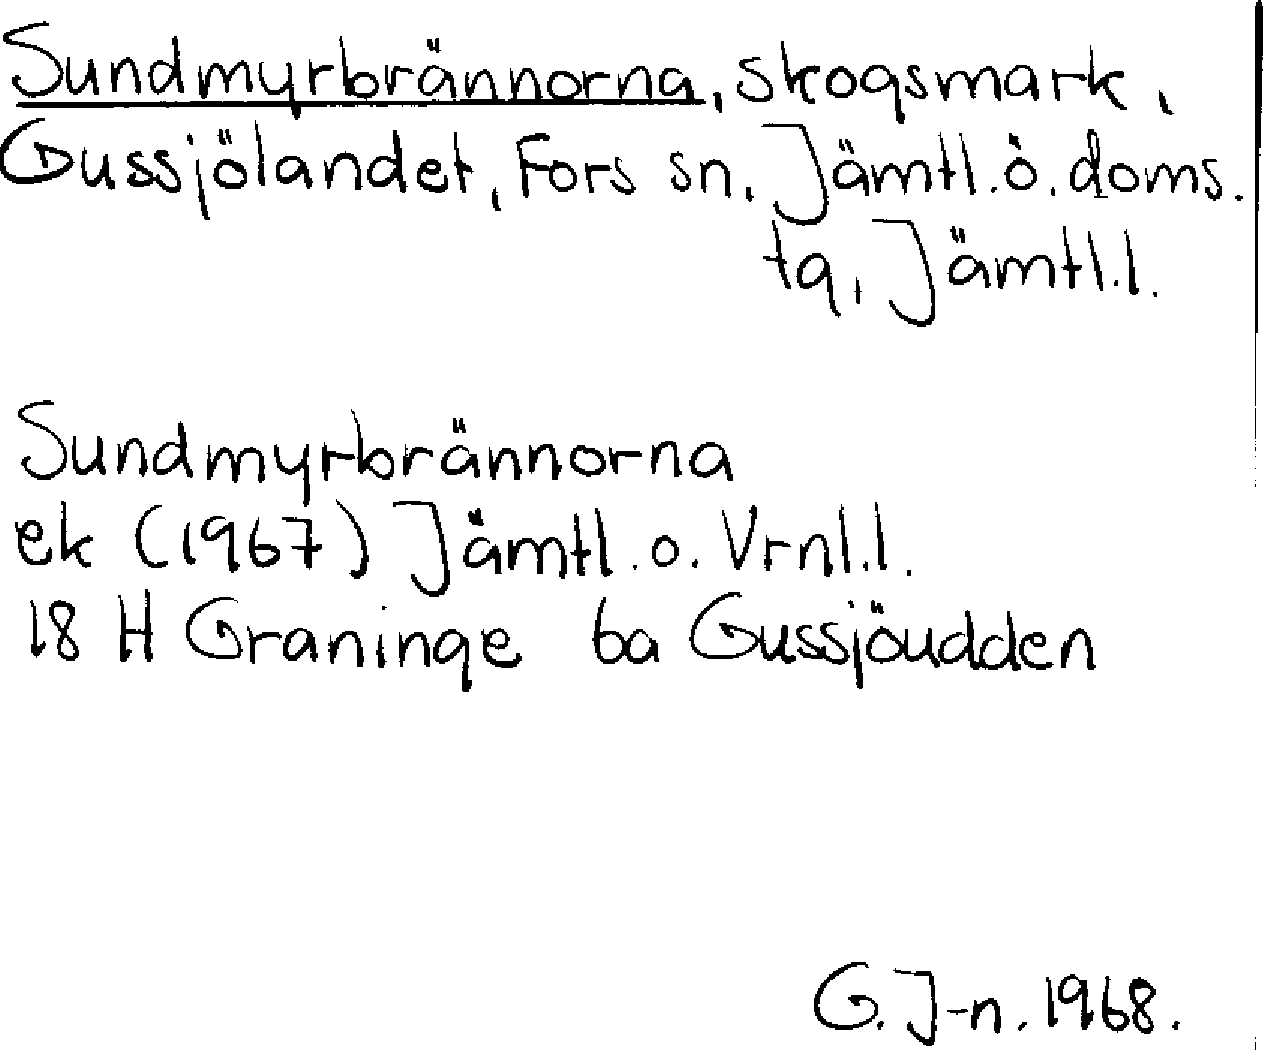 Sundmyrbrännorna, skogsmark,
Gussjölandet, Fors sn, Jämtl.ö.doms.
tg, Jämtl.l.
Sundmyrbrännorna
ek (1967) Jämtl.o. Vrnl.l.
18 H Graninge 6a Gussjöudden
G.J-n. 1968.